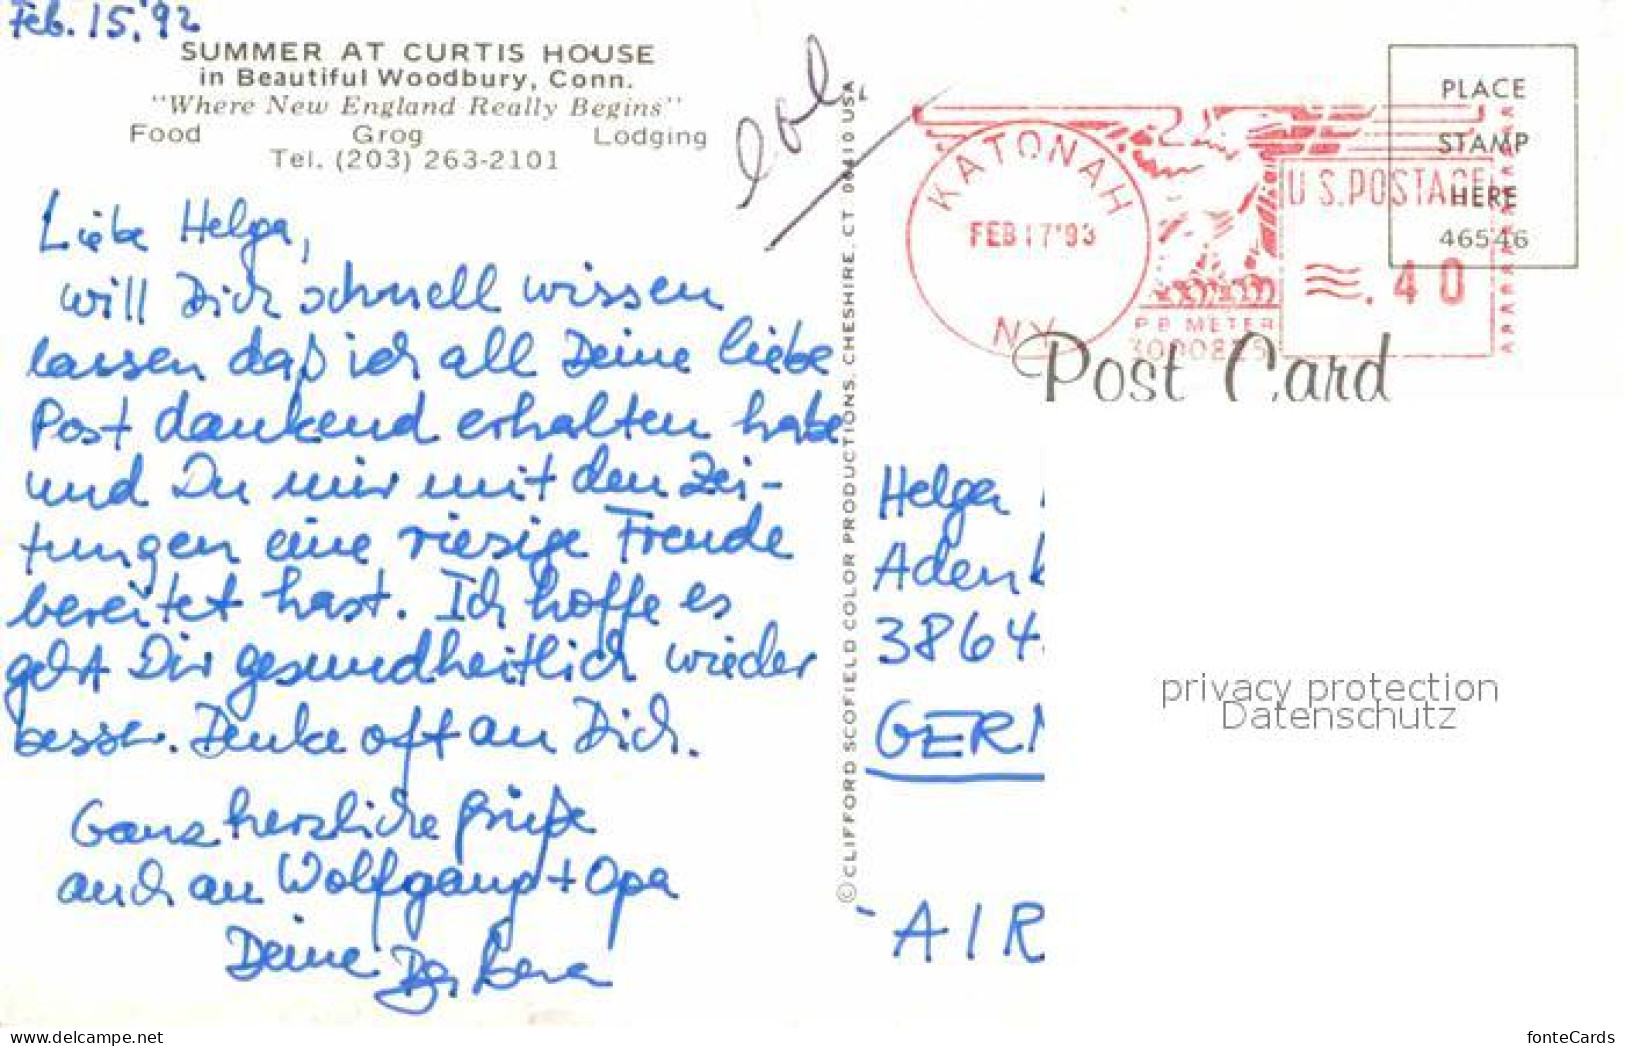 Feb. 15, '92
SUMMER AT CURTIS HOUSE
in Beautiful Woodbury, Conn.
"Where New England Really Begins"
Food Grog Lodging
Tel. (203) 263-2101
Liebe Helga,
will Dich schnell wissen
lassen daß ich all Deine liebe
Post dankend erhalten habe
und Du mir mit den Zei-
tungen eine riesige Freude
bereitet hast. Ich hoffe es
geht Dir gesundheitlich wieder
besser. Denke oft an Dich.
Ganz herzliche Grüße
auch an Wolfgang + Opa
Deine Barbara
© CLIFFORD SCOFIELD COLOR PRODUCTIONS, CHESHIRE, CT 06410 USA
KATONAH
FEB 17 '93
NY
P.B. METER
U.S. POSTAGE
.40
PLACE
STAMP
HERE
46546
Post Card
Helga
Adenk
3864
GER
AIR
privacy protection
Datenschutz
www.delcampe.net
fonteCards